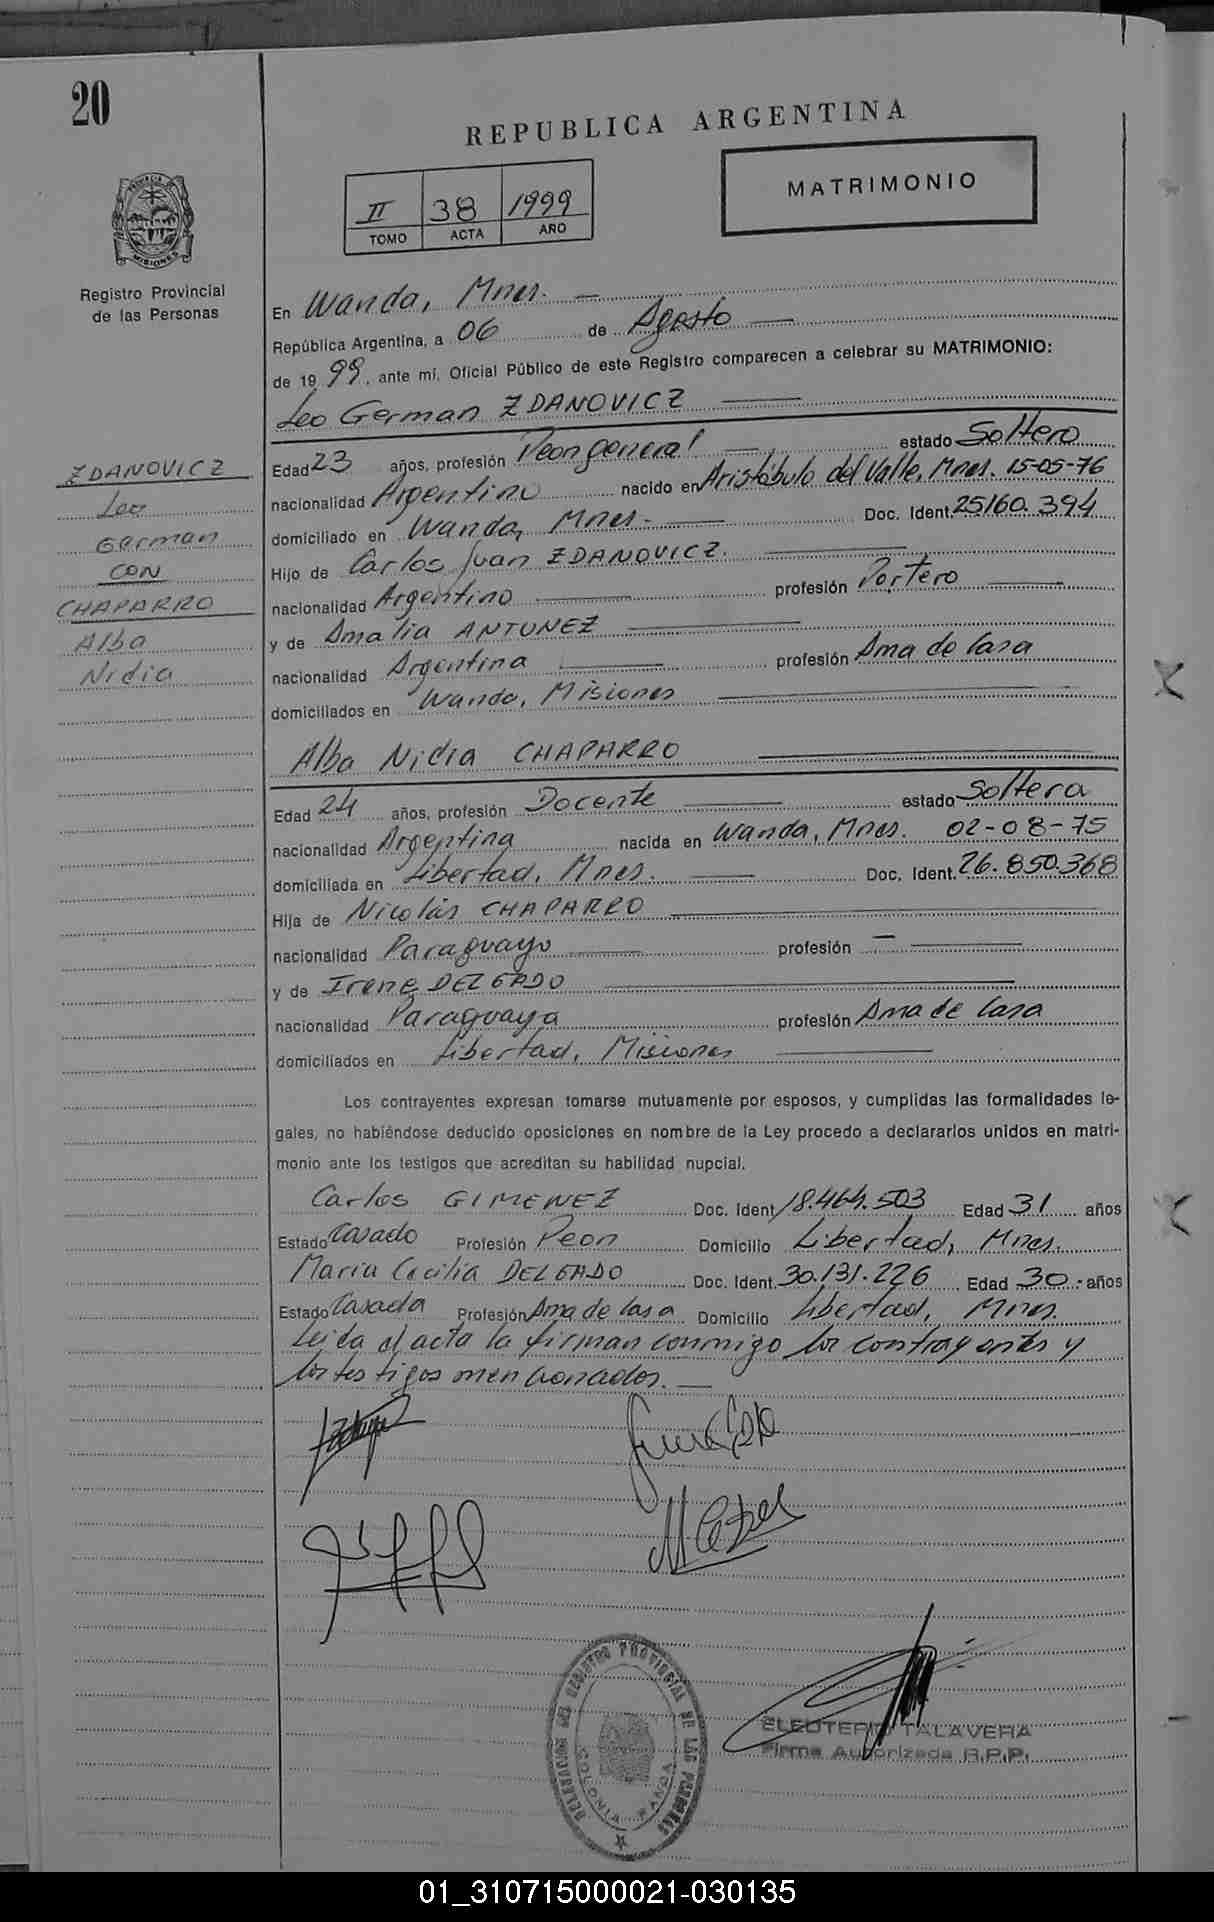 20
REPUBLICA ARGENTINA
MATRIMONIO
II 38 1999
TOMO ACTA AÑO
PROVINCIA DE MISIONES
Registro Provincial
de las Personas
En Wanda, Mnes. —
República Argentina, a 06 de Agosto —
de 19 99, ante mí, Oficial Público de este Registro comparecen a celebrar su MATRIMONIO:
Leo German ZDANOVICZ —
ZDANOVICZ
Leo
German
CON
CHAPARRO
Alba
Nidia
Edad 23 años, profesión Peon general — estado Soltero
nacionalidad Argentino nacido en Aristóbulo del Valle, Mnes. 15-05-76
domiciliado en Wanda, Mnes. — Doc. Ident. 25160.394
Hijo de Carlos Juan ZDANOVICZ. —
nacionalidad Argentino — profesión Portero —
y de Amalia ANTUNEZ —
nacionalidad Argentina — profesión Ama de Casa
domiciliados en Wanda, Misiones —
Alba Nidia CHAPARRO —
Edad 24 años, profesión Docente — estado Soltera
nacionalidad Argentina nacida en Wanda, Mnes. 02-08-75
domiciliada en Libertad, Mnes. — Doc. Ident. 26.850.368
Hija de Nicolás CHAPARRO —
nacionalidad Paraguayo — profesión — —
y de Irene DELGADO —
nacionalidad Paraguaya profesión Ama de Casa
domiciliados en Libertad, Misiones —
Los contrayentes expresan tomarse mutuamente por esposos, y cumplidas las formalidades le-
gales, no habiéndose deducido oposiciones en nombre de la Ley procedo a declararlos unidos en matri-
monio ante los testigos que acreditan su habilidad nupcial.
Carlos GIMENEZ Doc. Ident. 18.464.503 Edad 31 años
Estado Casado Profesión Peon Domicilio Libertad, Mnes.
Maria Cecilia DELGADO Doc. Ident. 30.131.226 Edad 30.- años
Estado Casada Profesión Ama de Casa Domicilio Libertad, Mnes.
Leida el acta la firman conmigo los contrayentes y
los testigos mencionados. —
REGISTRO PROVINCIAL DE LAS PERSONAS
COLONIA WANDA
ELEUTERIO TALAVERA
Firma Autorizada R.P.P.
01_310715000021-030135